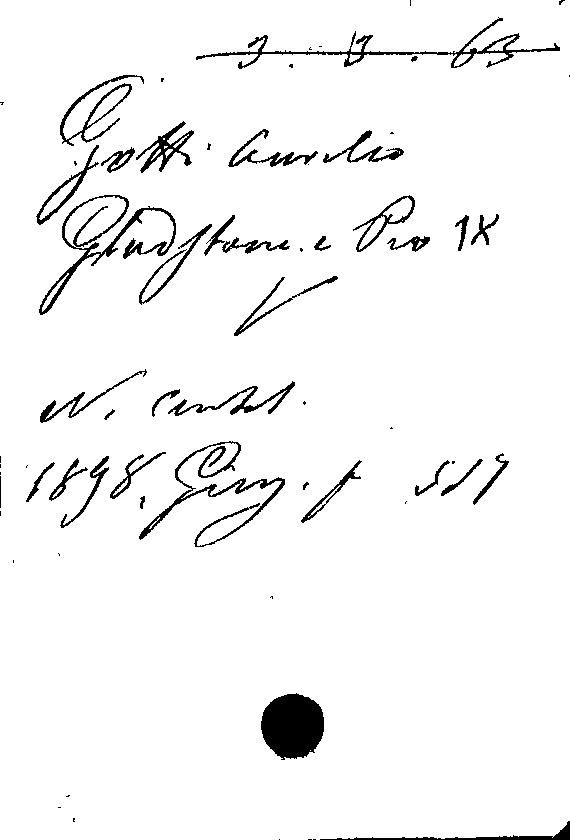 3. B. 63
Gotti Aurelio
Gladstone e Pio IX
V
N.
1898, Giug. p 517